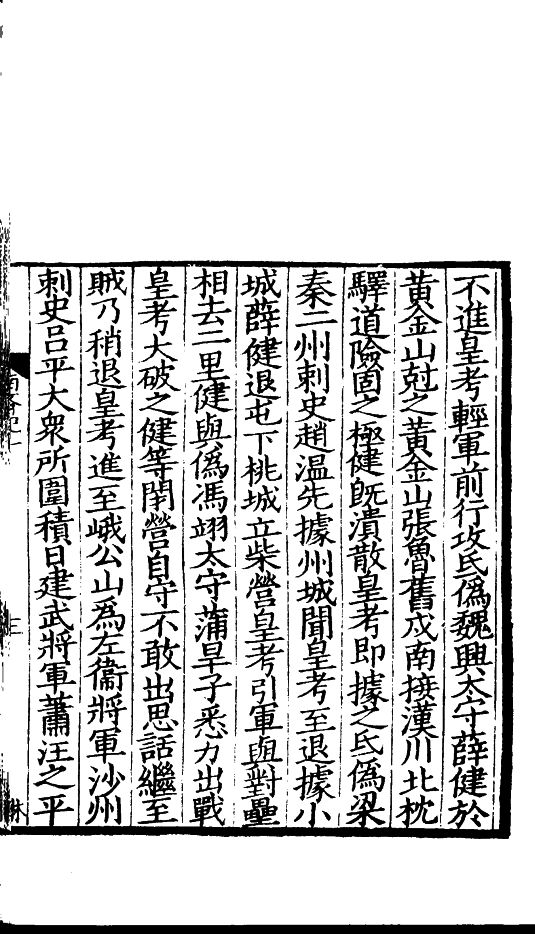 不進皇考輕軍前行攻氐僞魏興太守薛健於
黃金山尅之黃金山張魯舊戍南接漢川北枕
驛道險固之極健旣潰散皇考卽據之氐僞梁
秦二州刺史趙溫先據州城聞皇考至退據小
城薛健退屯下桃城立柴營皇考引軍與對壘
相去二里健與僞馮翊太守蒲早子悉力出戰
皇考大破之健等閉營自守不敢出思話繼至
賊乃稍退皇考進至峨公山爲左衞將軍沙州
刺史吕平大衆所圍積日建武將軍蕭汪之平
三